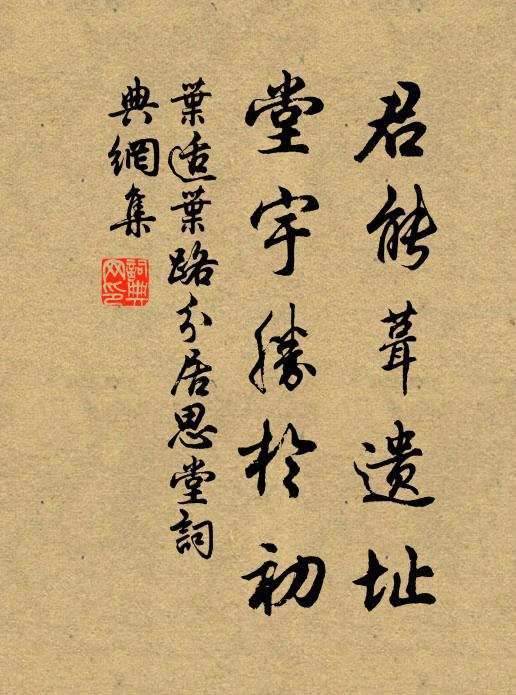 君能葺遺址
堂宇勝於初
葉适葉路分居思堂詞
典網集
詞典網印